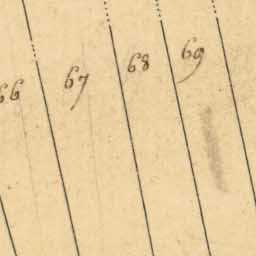 66 67 68 69